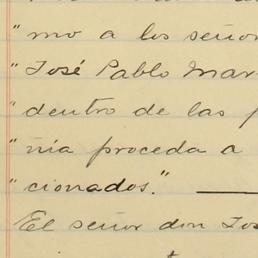 "mo a los señor
"José Pablo Mar
"dentro de las
"ñia proceda a
"cionados."
El señor don Jos